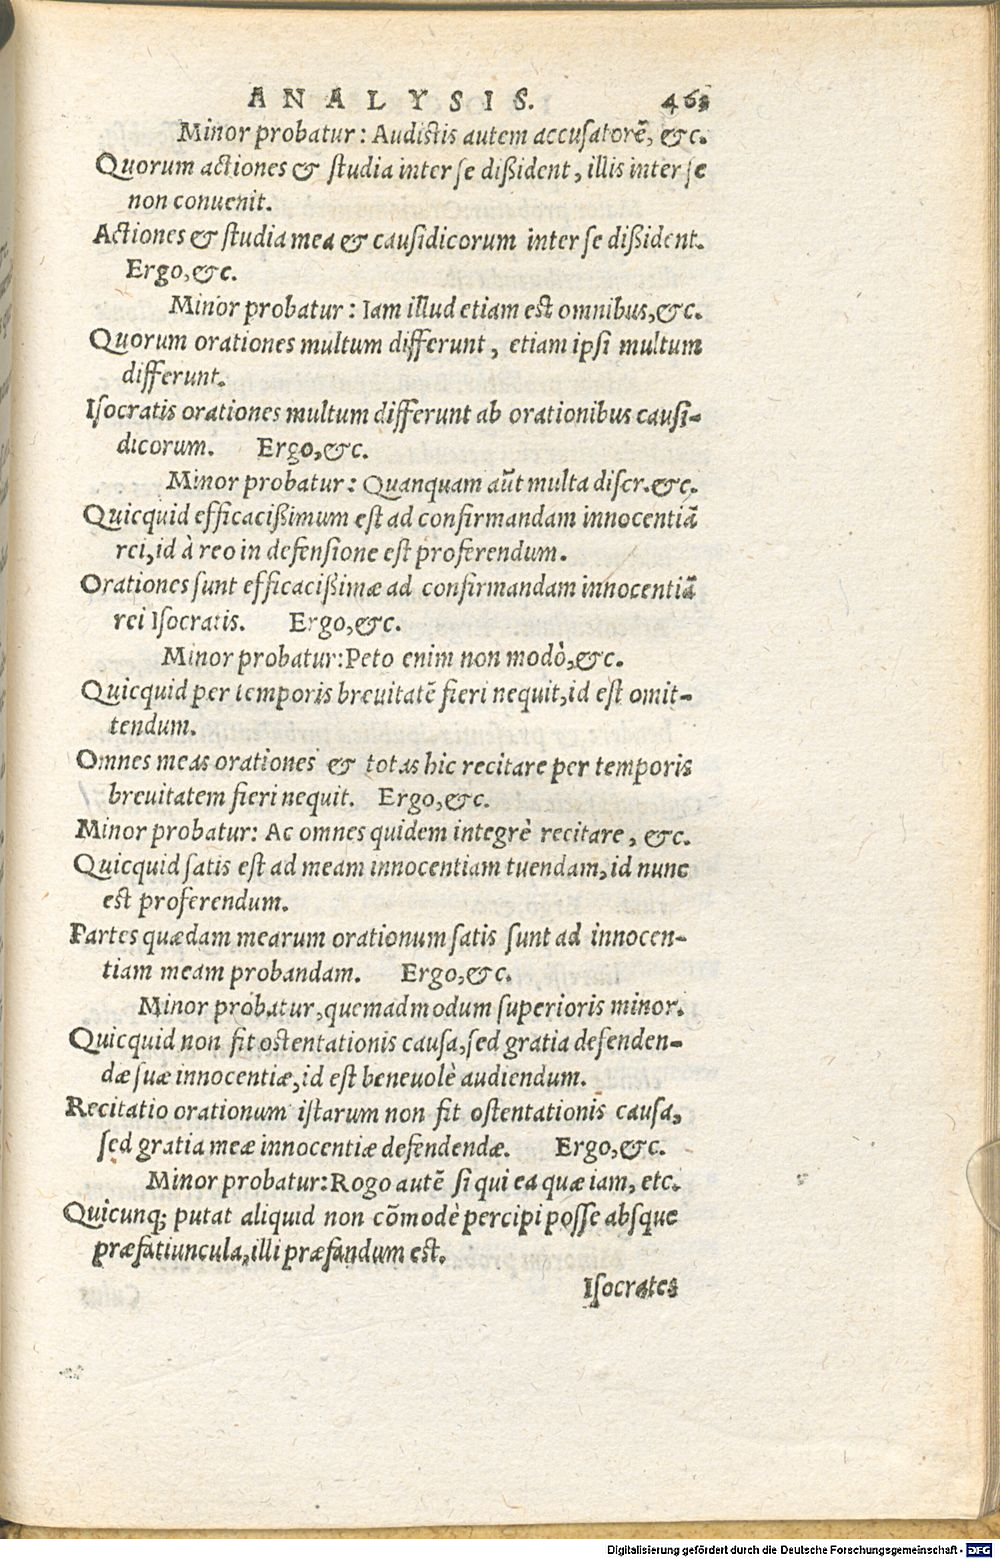 ANALYSIS. 463
Minor probatur: Audistis autem accusatorē, &c.
Quorum actiones & studia inter se dißident, illis inter se
non conuenit.
Actiones & studia mea & causidicorum inter se dißident.
Ergo, &c.
Minor probatur: Iam illud etiam est omnibus, &c.
Quorum orationes multum differunt, etiam ipsi multum
differunt.
Isocratis orationes multum differunt ab orationibus causi-
dicorum. Ergo, &c.
Minor probatur: Quanquam aūt multa discr. &c.
Quicquid efficacißimum est ad confirmandam innocentiā
rei, id à reo in defensione est proferendum.
Orationes sunt efficacißimæ ad confirmandam innocentiā
rei Isocratis. Ergo, &c.
Minor probatur: Peto enim non modò, &c.
Quicquid per temporis breuitatē fieri nequit, id est omit-
tendum.
Omnes meas orationes & totas hic recitare per temporis
breuitatem fieri nequit. Ergo, &c.
Minor probatur: Ac omnes quidem integrè recitare, &c.
Quicquid satis est ad meam innocentiam tuendam, id nunc
est proferendum.
Partes quædam mearum orationum satis sunt ad innocen-
tiam meam probandam. Ergo, &c.
Minor probatur, quemadmodum superioris minor.
Quicquid non fit ostentationis causa, sed gratia defenden-
dæ suæ innocentiæ, id est beneuolè audiendum.
Recitatio orationum istarum non fit ostentationis causa,
sed gratia meæ innocentiæ defendendæ. Ergo, &c.
Minor probatur: Rogo autē si qui ea quæ iam, etc.
Quicunq; putat aliquid non cōmodè percipi posse absque
præfatiuncula, illi præfandum est.
Isocrates
Digitalisierung gefördert durch die Deutsche Forschungsgemeinschaft - DFG